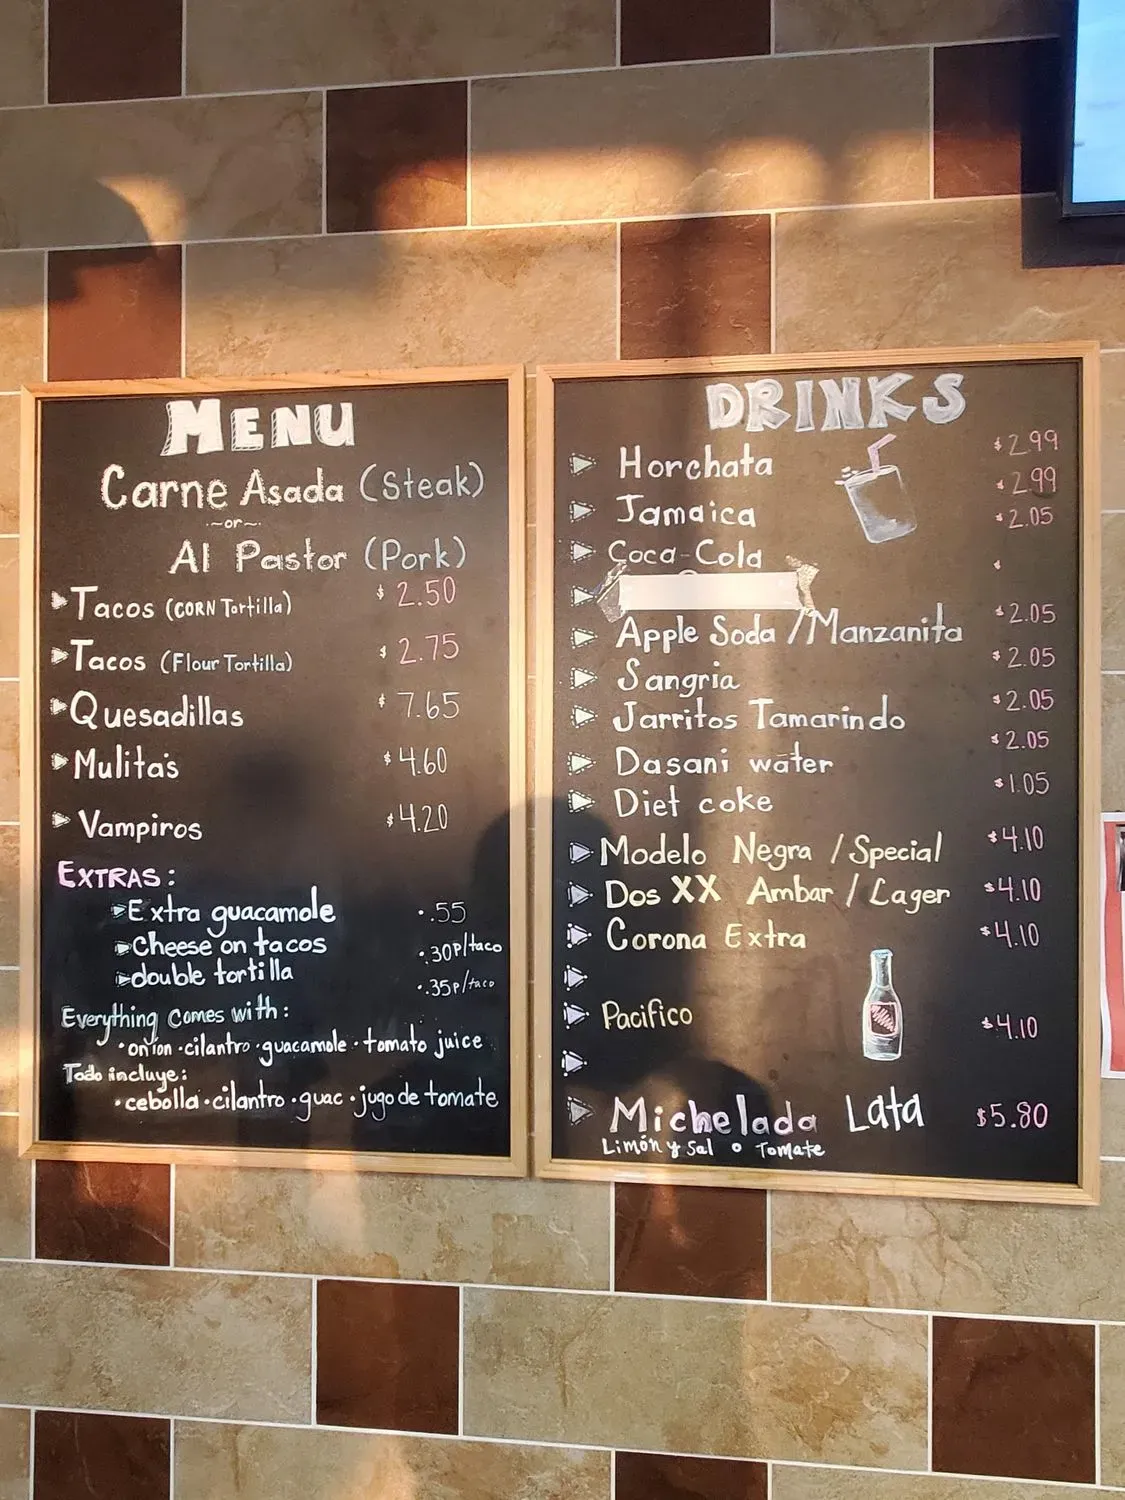 MENU
Carne Asada (Steak)
~or~
Al Pastor (Pork)
Tacos (CORN Tortilla) $2.50
Tacos (Flour Tortilla) $2.75
Quesadillas $7.65
Mulitas $4.60
Vampiros $4.20
EXTRAS:
Extra guacamole .55
Cheese on tacos .30p/taco
double tortilla .35p/taco
Everything comes with:
·onion ·cilantro ·guacamole ·tomato juice
Todo incluye:
·cebolla ·cilantro ·guac ·jugo de tomate
DRINKS
Horchata $2.99
Jamaica $2.99
Coca-Cola $2.05
$
Apple Soda /Manzanita $2.05
Sangria $2.05
Jarritos Tamarindo $2.05
Dasani water $2.05
Diet coke $1.05
Modelo Negra /Special $4.10
Dos XX Ambar / Lager $4.10
Corona Extra $4.10
Pacifico $4.10
Michelada Lata $5.80
Limón y Sal o Tomate